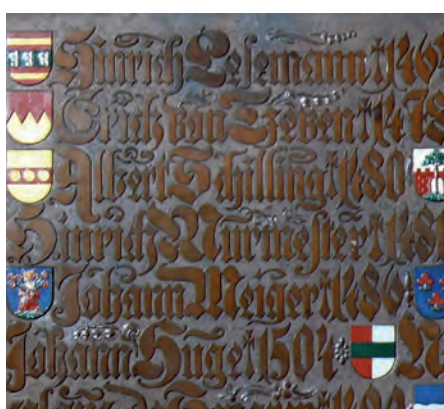 Hinrich Lesemann † 146
Erick van Tzeven † 1478
Albert Schilling † 1480
Hinrich Murmester † 1481
Johann Meiger † 1486
Johann Huge † 1504